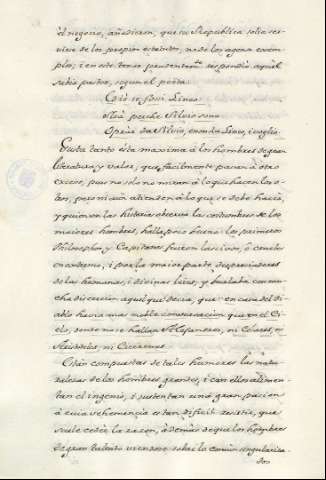 el negocio, añadieron, que su Republica solia ser-
virse de los propios estatutos, no de los agenos exem-
plos; i en este tenor prudentem.te respondió aquel
sabio pastor, segun el poeta.
Cosi se fossi Linco
Mà perche Silvio sono
Opera da Silvio, e non da Linco, i voglio.
Gusta tanto esta maxima à los hombres de gran
literatura y valor, que facilmente pasan à otro
exceso, pues no solo no miran à lo que hacen los o-
tros, pero ni aun atienden à lo que se debe hacer,
y quien en las historias observa las costumbres de los
maiores hombres, hallará como los primeros
Philosophos y Capitanes fueron lascivos, ó crueles
en extremo; i por la maior parte despreciadores
de las humanas, i divinas leies, y burlaba con mu-
cha discrecion aquel que decia, que en casa del Di-
ablo havia mas noble conversacion que en el Ci-
elo, donde no se hallan Alexandros, ni Cesares, ni
Aristoteles, ni Cicerones.
Están compuestas de tales humores las natu-
ralezas de los hombres grandes, i con ellos alimen-
tan el ingenio, i sustentan una gran pasion
à cuia vehemencia es tan dificil resistir, que
suele ceder la razon, à demas de que los hombres
de gran talento viendose sobre lo comun singulariza-
dos